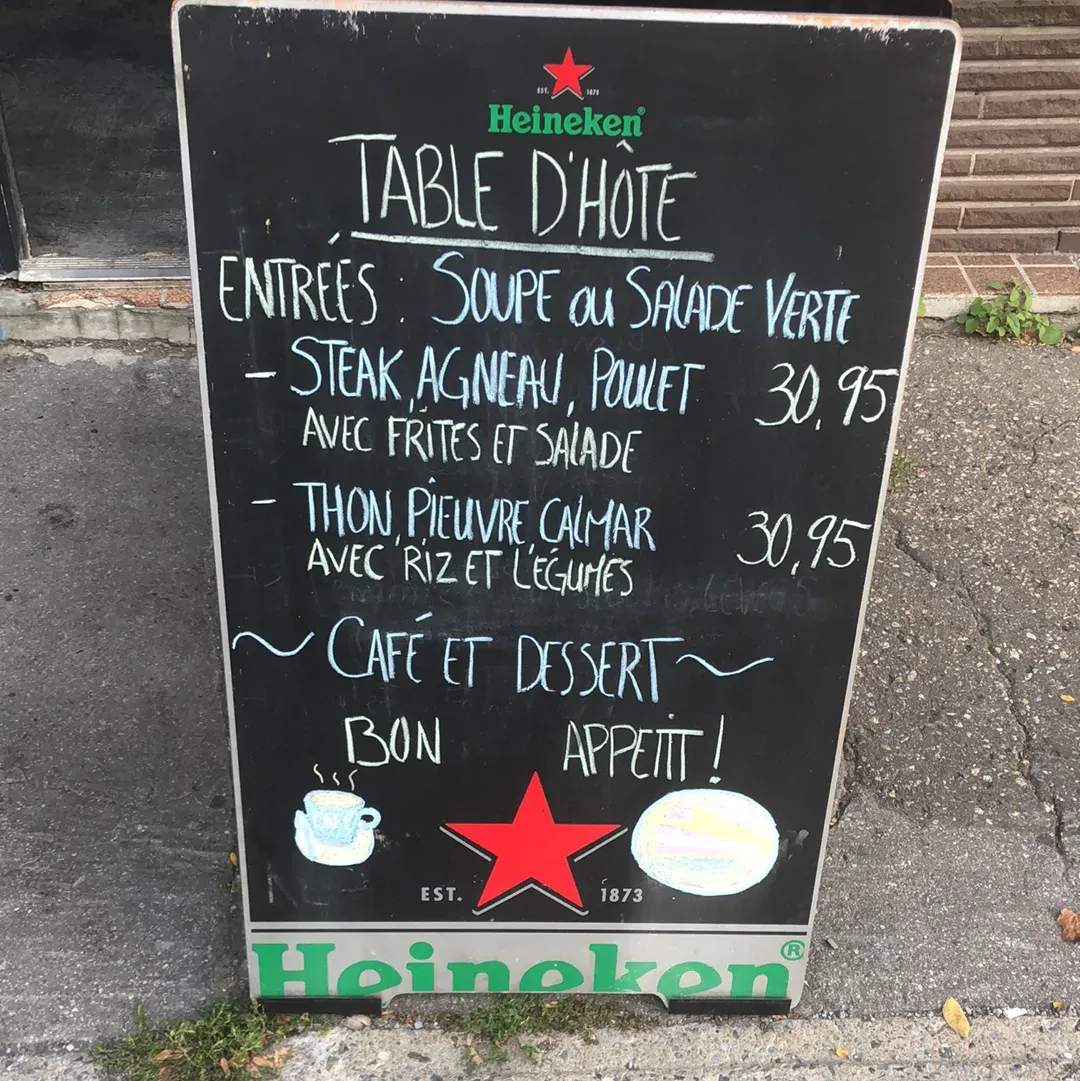 EST. 1873
Heineken®
TABLE D'HÔTE
ENTRÉÉS : SOUPE OU SALADE VERTE
- STEAK, AGNEAU, POULET 30,95
AVEC FRITES ET SALADE
- THON, PIEUVRE, CALMAR 30,95
AVEC RIZ ET LÉGUMES
~ CAFÉ ET DESSERT ~
BON APPETIT !
CAFÉ
EST. 1873
Heineken®